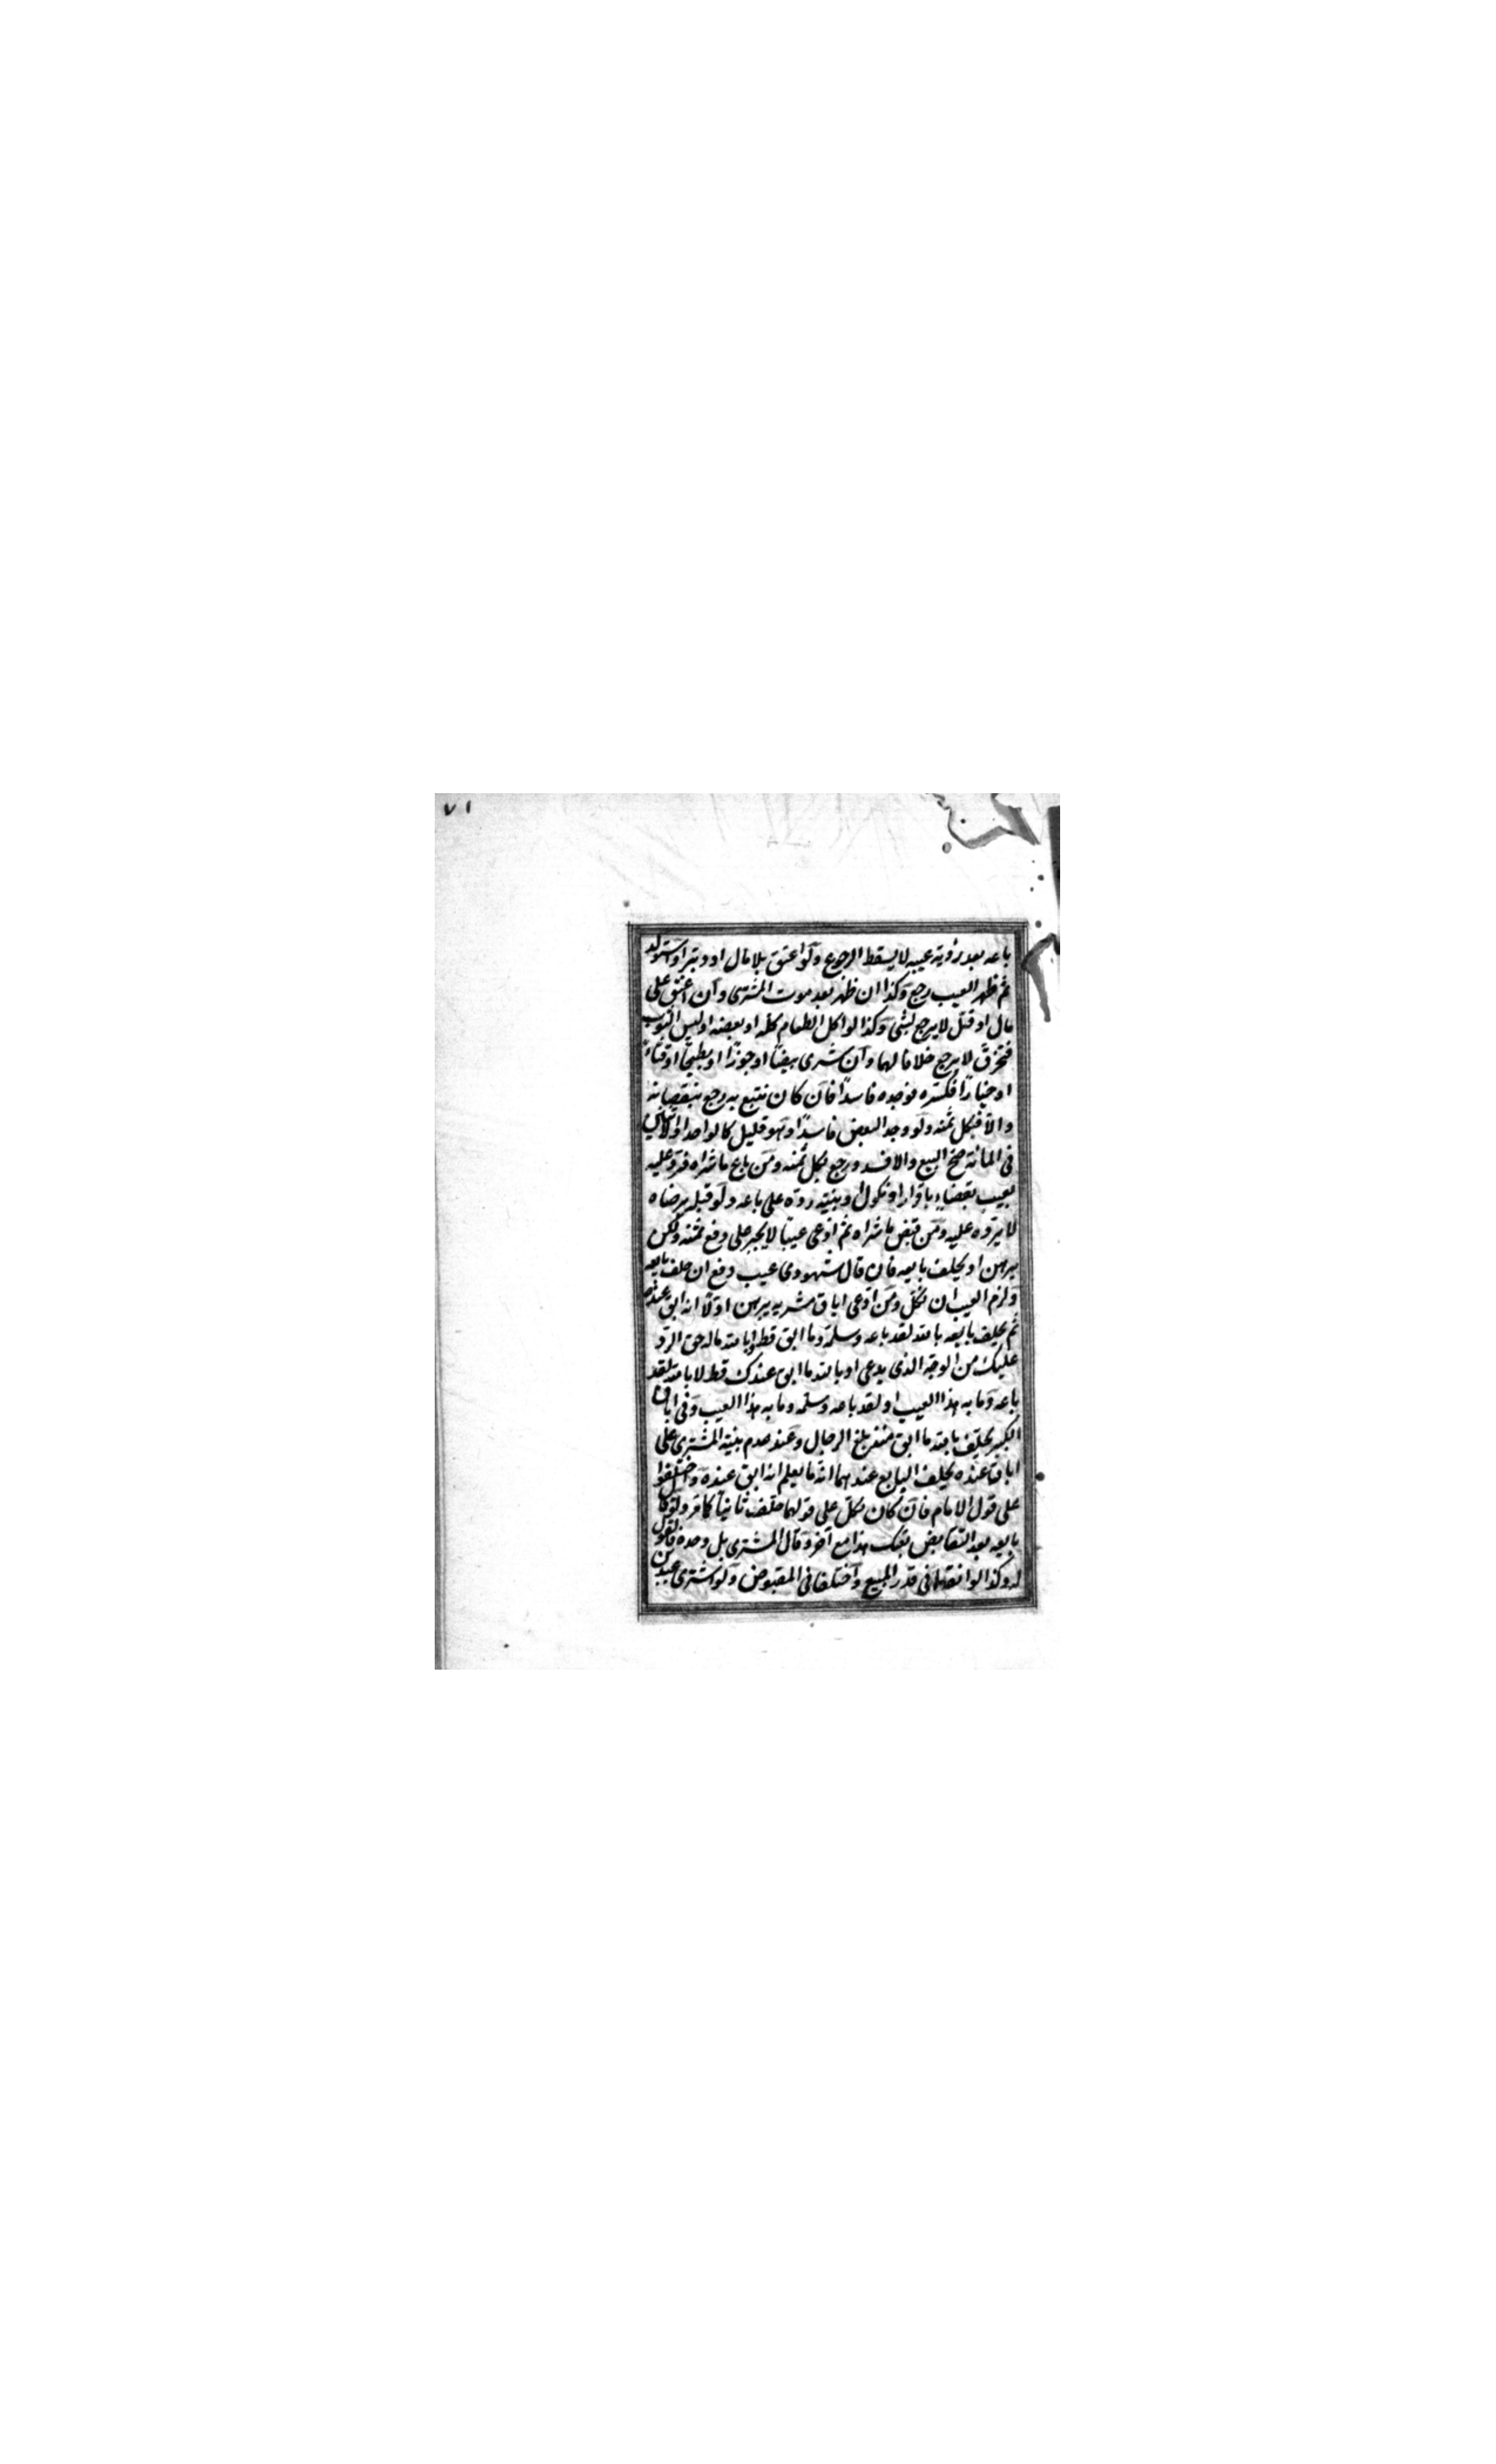 ٧١
باعه بعد رؤية عيبه لا يسقط الرجوع ولو اعتق بلا مال او دبر او استولد
ثم ظهر العيب رجع وكذا ان ظهر بعد موت المشترى وان اعتق على
مال او قتل لا يرجع بشئ وكذا لو اكل الطعام كله او بعضه او لبس الثوب
فتخرق لا يرجع خلافا لهما وان شرى بيضا او جوزا او بطيخا او قثاء
او خيارا فكسره فوجده فاسدا فان كان ينتفع به رجع بنقصانه
والا فبكل ثمنه ولو وجد البعض فاسدا وهو قليل كالواحد او الاثنين
فى المائة صح البيع والا فسد ورجع بكل ثمنه ومن باع ما شراه فرد عليه
بعيب بقضاء باقرار او نكول او بينة رده على باعه ولو قبله برضاه
لا يرده عليه ومن قبض ما شراه ثم ادعى عيبا لا يجبر على دفع ثمنه ولكن
يبرهن او يحلف بايعه فان قال شهودى غيب دفع ان حلف بايعه
ولزم العيب ان نكل ومن ادعى اباق مشريه يبرهن اولا انه ابق عنده
ثم يحلف بايعه بالله لقد باعه وسلمه وما ابق قط او بالله ماله حق الرد
عليك من الوجه الذى يدعى او بالله ما ابق عندك قط لا بالله لقد
باعه وما به هذا العيب او لقد باعه وسلمه وما به هذا العيب وفى اباق
الكبير يحلف بالله ما ابق منذ بلغ الرجال وعند عدم بينة المشترى على
اباقه عنده يحلف البايع عندهما انه ما يعلم انه ابق عنده واختلفوا
على قول الامام فان كان نكل على قولهما حلف ثانيا كما مر ولو قال
بايعه بعد التقابض بعتك هذا مع آخر وقال المشترى بل وحده فالقول
له وكذا لو اتفقا فى قدر المبيع واختلفا فى المقبوض ولو اشترى عبدين